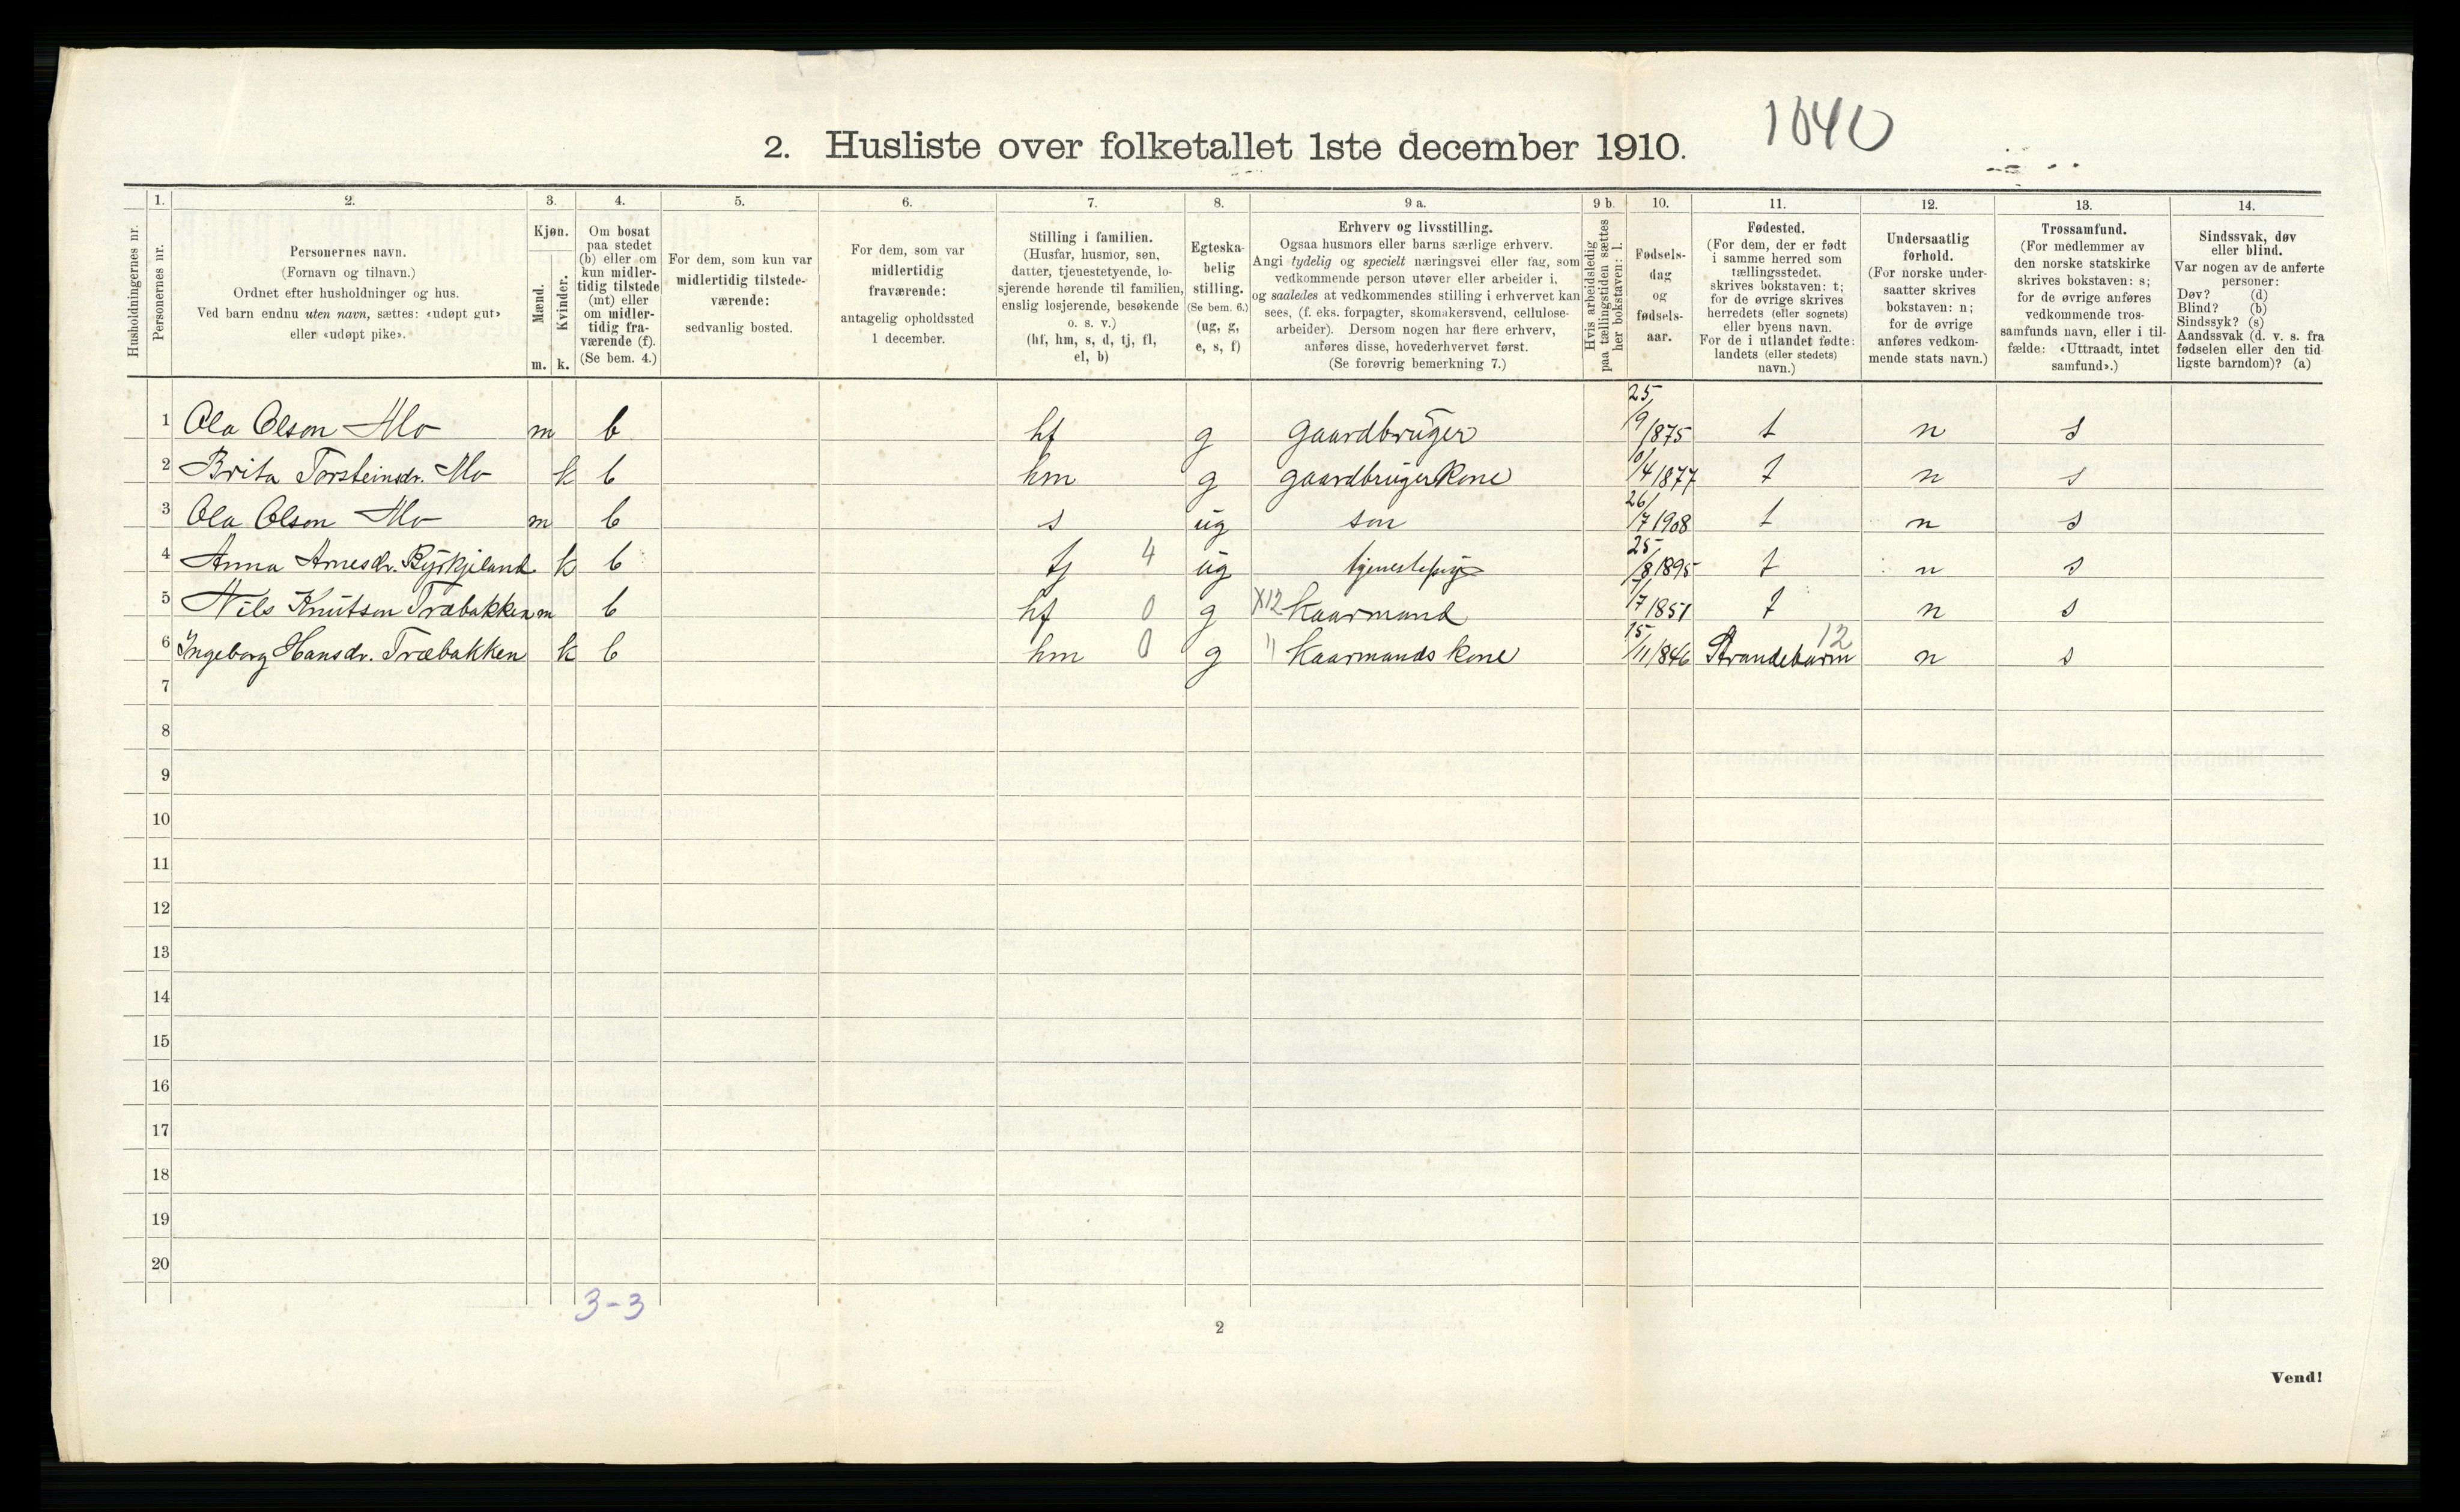 1040
2. Husliste over folketallet 1ste december 1910.
Husholdningernes nr.
1.
Personernes nr.
2.
Personernes navn.
(Fornavn og tilnavn.)
Ordnet efter husholdninger og hus.
Ved barn endnu uten navn, sættes: «udøpt gut»
eller «udøpt pike».
3.
Kjøn.
Mænd.
Kvinder.
m. k.
4.
Om bosat
paa stedet
(b) eller om
kun midler-
tidig tilstede
(mt) eller
om midler-
tidig fra-
værende (f).
(Se bem. 4.)
5.
For dem, som kun var
midlertidig tilstede-
værende:
sedvanlig bosted.
6.
For dem, som var
midlertidig
fraværende:
antagelig opholdssted
1 december.
7.
Stilling i familien.
(Husfar, husmor, søn,
datter, tjenestetyende, lo-
sjerende hørende til familien,
enslig losjerende, besøkende
o. s. v.)
(hf, hm, s, d, tj, fl,
el, b)
8.
Egteska-
belig
stilling.
(Se bem. 6.)
(ug, g,
e, s, f)
9 a.
Erhverv og livsstilling.
Ogsaa husmors eller barns særlige erhverv.
Angi tydelig og specielt næringsvei eller fag, som
vedkommende person utøver eller arbeider i,
og saaledes at vedkommendes stilling i erhvervet kan
sees, (f. eks. forpagter, skomakersvend, cellulose-
arbeider). Dersom nogen har flere erhverv,
anføres disse, hovederhvervet først.
(Se forøvrig bemerkning 7.)
9 b.
Hvis arbeidsledig
paa tællingstiden sættes
her bokstaven: l.
10.
Fødsels-
dag
og
fødsels-
aar.
11.
Fødested.
(For dem, der er født
i samme herred som
tællingsstedet,
skrives bokstaven: t;
for de øvrige skrives
herredets (eller sognets)
eller byens navn.
For de i utlandet fødte:
landets (eller stedets)
navn.)
12.
Undersaatlig
forhold.
(For norske under-
saatter skrives
bokstaven: n;
for de øvrige
anføres vedkom-
mende stats navn.)
13.
Trossamfund.
(For medlemmer av
den norske statskirke
skrives bokstaven: s;
for de øvrige anføres
vedkommende tros-
samfunds navn, eller i til-
fælde: «Uttraadt, intet
samfund».)
14.
Sindssvak, døv
eller blind.
Var nogen av de anførte
personer:
Døv? (d)
Blind? (b)
Sindssyk? (s)
Aandssvak (d. v. s. fra
fødselen eller den tid-
ligste barndom)? (a)
1 Ola Olson Mo m b hf g gaardbruger 25/9 1875 t n s
2 Brita Torsteinsdr. Mo k b hm g gaardbrugerkone 10/4 1877 t n s
3 Ola Olson Mo m b s ug son 26/7 1908 t n s
4 Anna Arnesdr. Byrkjeland k b tj 4 ug tjenestepige 25/8 1895 t n s
5 Nils Knutson Træbakken m b hf 0 g X12 Kaarmand /7 1851 t n s
6 Ingeborg Hansdr. Træbakken k b hm 0 g " Kaarmands kone 15/11 1846 Strandebarm 12 n s
7
8
9
10
11
12
13
14
15
16
17
18
19
20
3-3
2
Vend!